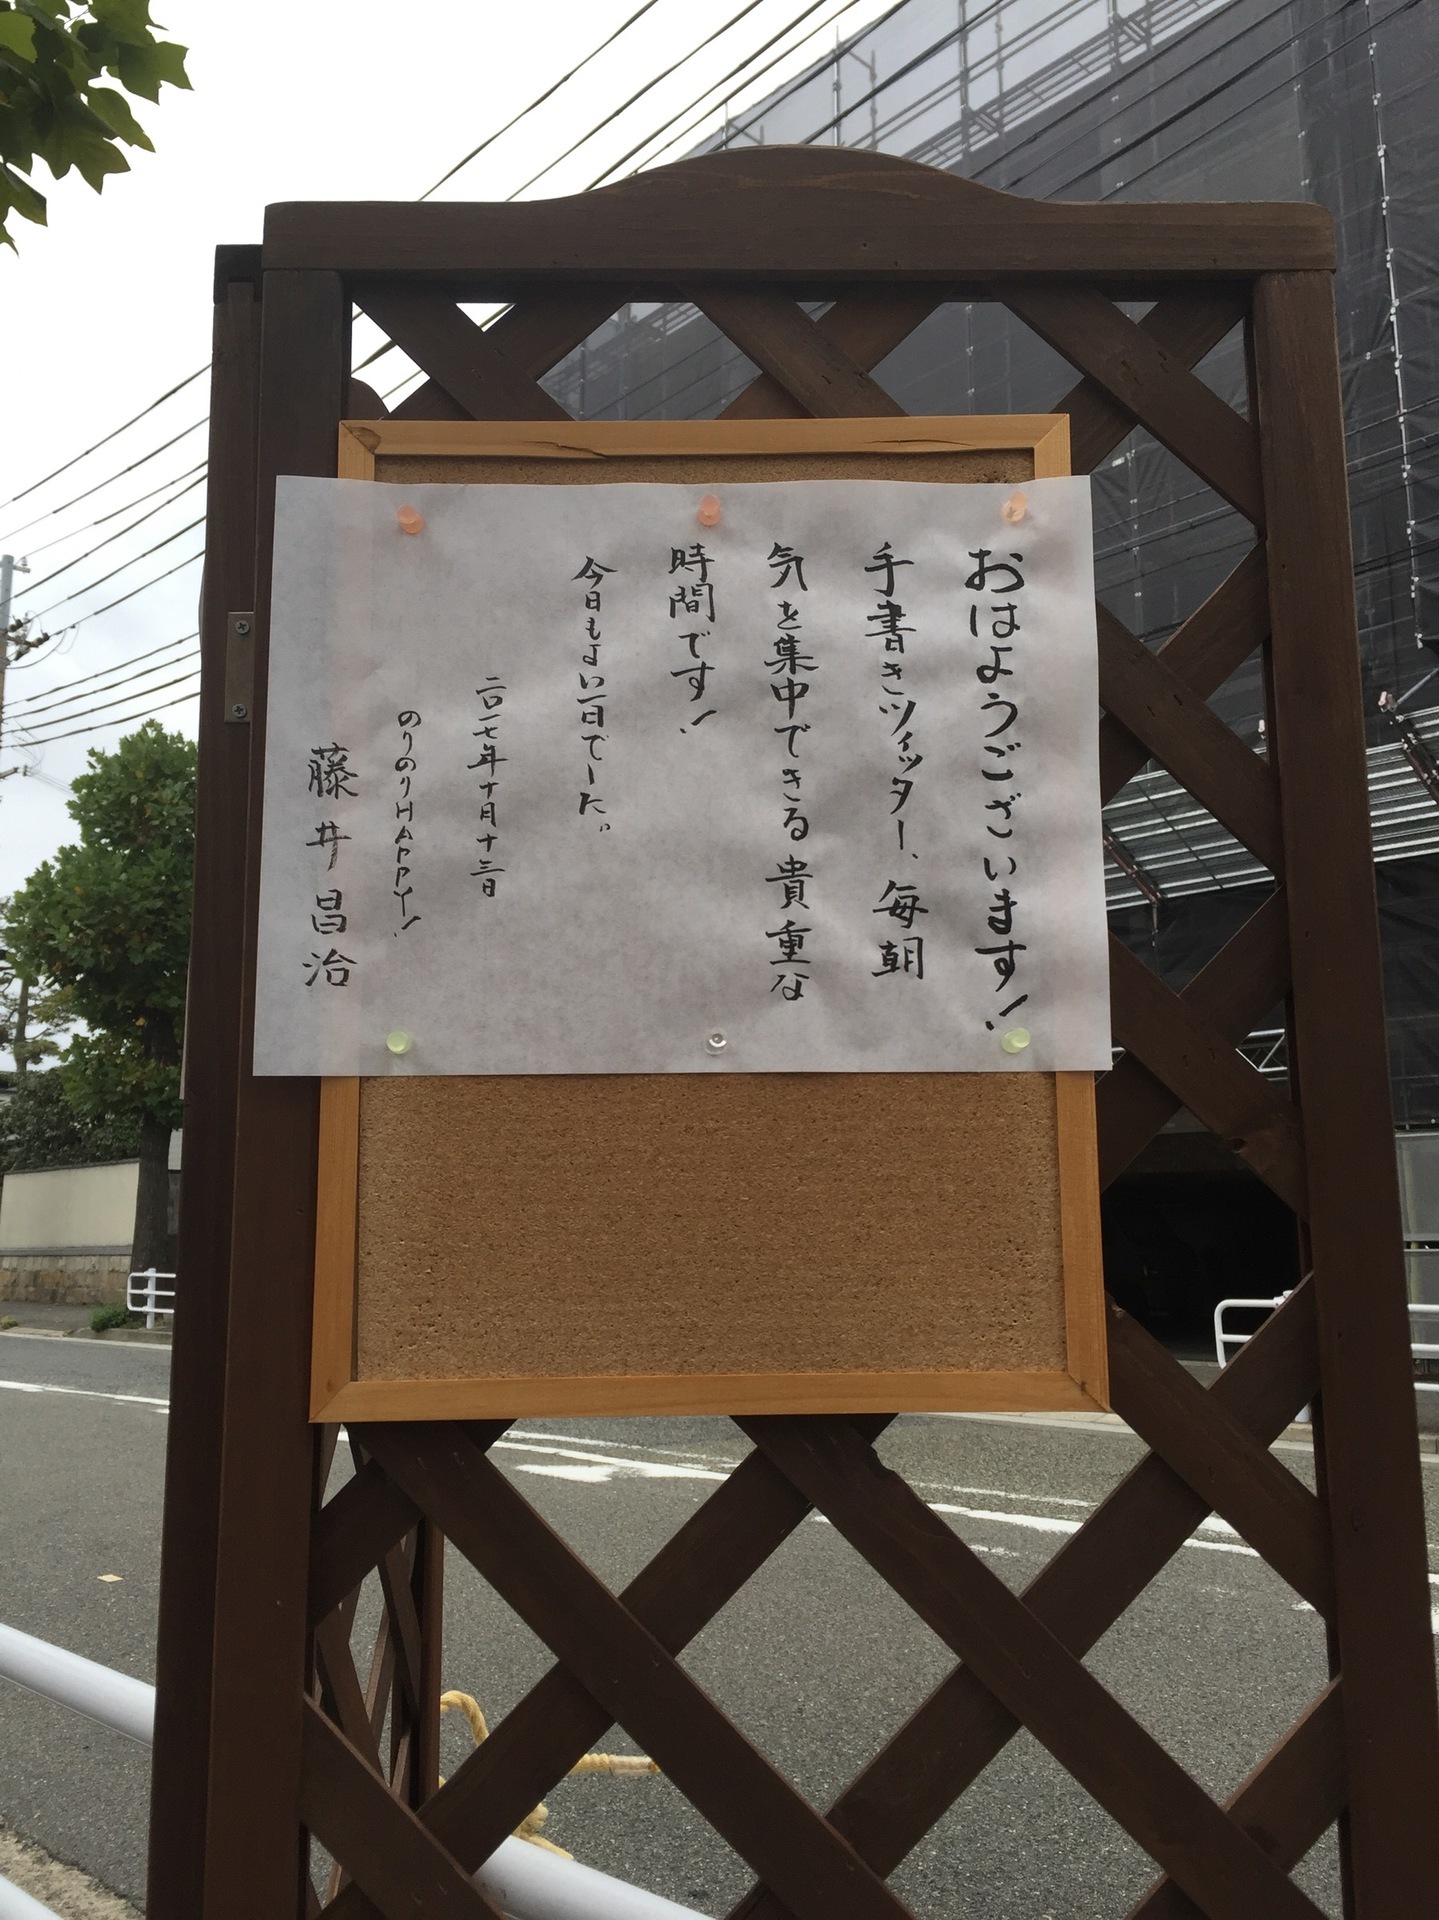 おはようございます!
手書きツイッター、毎朝
気を集中できる貴重な
時間です!
今日もよい一日でした。
二〇一七年十月十三日
のりのりHAPPY!
藤井昌治